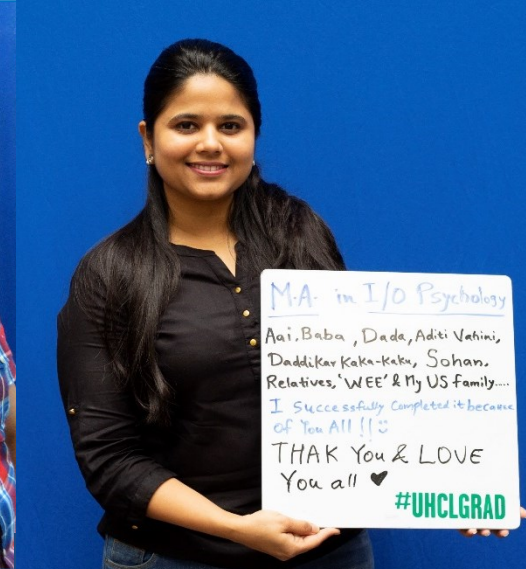 M.A. in I/O Psychology
Aai, Baba, Dada, Aditi Vahini,
Daddikar Kaka-Kaku, Sohan,
Relatives, 'WEE' & My US family.....
I Successfully Completed it because
of You All !! :)
THAK You & LOVE
You all ♥
#UHCLGRAD